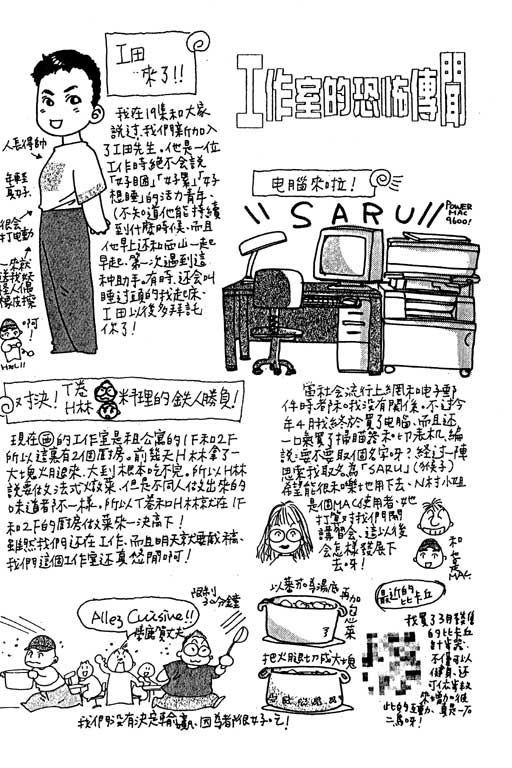 工作室的恐怖傳聞
工田
來了!!
我在19集和大家
說過,我們新加入
了工田先生。他是一位
工作時絕不會說
「好睏」「好累」「好
想睡」的活力青年。
(不知道他能持續
到什麼時候。而且
他早上還和西山一起
早起。第一次遇到這
種助手。有時,還會叫
睡過頭的我起床。
工田以後多拜託
你了!
人長得帥
年輕
真好。
很會
打電動
啊!
电腦來啦!
\\ SARU //
POWER
MAC
9600!
當社会流行上網和电子郵
件時,都和我沒有關係。不过今
年4月我終於買了电腦。而且還
一口氣買了掃瞄器和印表机。編
說:要不要取個名字呀?経过一陣
思索我取名為「SARU」(猴子)
希望能很和樂地用下去。N村小姐
是個MAC使用者,她
打算对我們開
講習會。這以後
会怎樣發展下
去呀!
和
也是
MAC.
对決!T卷
H林
料理的鉄人勝負!
現在的工作室是租公寓的1F和2F
所以這裏有2個廚房。前幾天H林拿了一
大塊火腿來,大到根本吃不完。所以H林
說要做法式火鍋菜。但是不同人做出來的
味道都不一樣。所以T卷和H林就在1F
和2F的廚房做菜來一決高下!
雖然我們还在工作,而且明天就要截稿。
我們這個工作室还真悠閒啊!
Allez Cuisine!!
限制
30分鐘
我們沒有決定輸贏,因為都很好吃!
以蕃茄為湯底
再加泡菜
把火腿切成大塊
最近的
比卡丘
我買了3月發售
的比卡丘
計步器。
不僅可以
健身,还